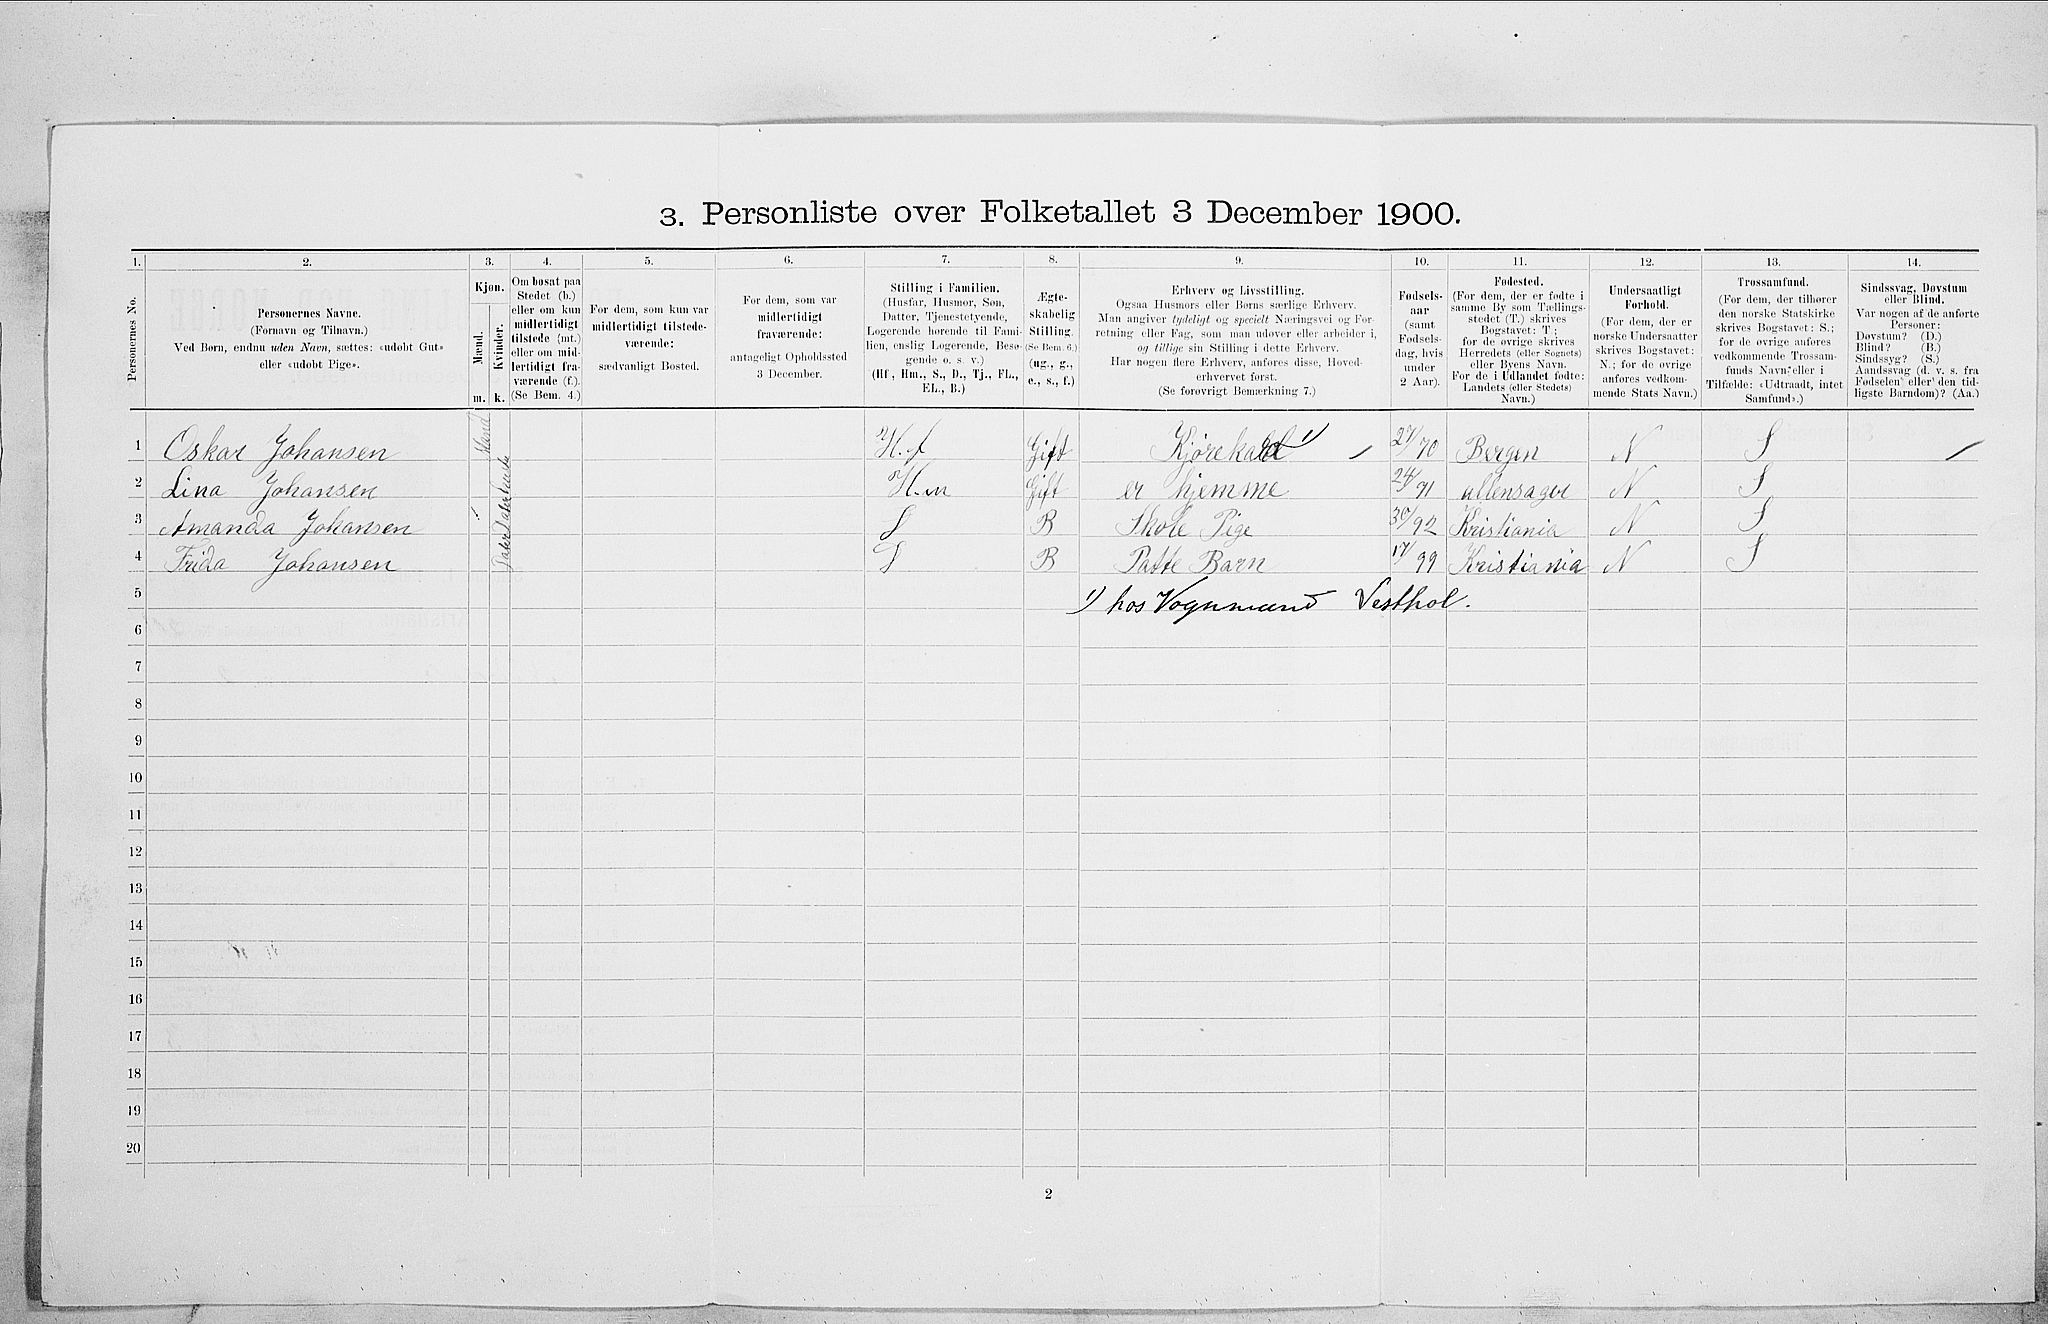 3. Personliste over Folketallet 3 December 1900.
1. 2. 3. 4. 5. 6. 7. 8. 9. 10. 11. 12. 13. 14.
Personernes No.
Personernes Navne.
(Fornavn og Tilnavn.)
Ved Børn, endnu uden Navn, sættes: «udøbt Gut»
eller «udøbt Pige».
Kjøn.
Mænd.
Kvinder.
m. k.
Om bosat paa
Stedet (b.)
eller om kun
midlertidigt
tilstede (mt.)
eller om mid-
lertidigt fra-
værende (f.).
(Se Bem. 4.)
For dem, som kun var
midlertidigt tilstede-
værende:
sædvanligt Bosted.
For dem, som var
midlertidigt
fraværende:
antageligt Opholdssted
3 December.
Stilling i Familien.
(Husfar, Husmor, Søn,
Datter, Tjenestetyende,
Logerende hørende til Fami-
lien, enslig Logerende, Besø-
gende o. s. v.)
(Hf., Hm., S., D., Tj., FL.,
EL., B.)
Ægte-
skabelig
Stilling.
(Se Bem. 6.)
(ug., g.,
e., s., f.)
Erhverv og Livsstilling.
Ogsaa Husmors eller Børns særlige Erhverv.
Man angiver tydeligt og specielt Næringsvei og For-
retning eller Fag, som man udøver eller arbeider i,
og tillige sin Stilling i dette Erhverv.
Har nogen flere Erhverv, anføres disse, Hoved-
erhvervet først.
(Se forøvrigt Bemærkning 7.)
Fødsels-
aar
(samt
Fødsels-
dag, hvis
under
2 Aar).
Fødested.
(For dem, der er fødte i
samme By som Tællings-
stedet (T.) skrives
Bogstavet: T;
for de øvrige skrives
Herredets (eller Sognets)
eller Byens Navn.
For de i Udlandet fødte:
Landets (eller Stedets)
Navn.)
Undersaatligt
Forhold.
(For dem, der er
norske Undersaatter
skrives Bogstavet:
N.; for de øvrige
anføres vedkom-
mende Stats Navn.)
Trossamfund.
(For dem, der tilhører
den norske Statskirke
skrives Bogstavet: S.;
for de øvrige anføres
vedkommende Trossam-
funds Navn, eller i
Tilfælde: «Udtraadt, intet
Samfund».)
Sindssvag, Døvstum
eller Blind.
Var nogen af de anførte
Personer:
Døvstum? (D.)
Blind? (B.)
Sindssyg? (S.)
Aandssvag (d. v. s. fra
Fødselen eller den tid-
ligste Barndom)? (Aa.)
1 Oskar Johansen H.f Gift Kjørekald 1) 27/70 Bergen N S
2 Lina Johansen H.m Gift er hjemme 24/71 ullensager N S
3 Amanda Johansen S B Skole Pige 30/92 Kristiania N S
4 Frida Johansen S B Patte Barn 17/99 Kristiania N S
5 1) hos Vognmand Vesthol.
6
7
8
9
10
11
12
13
14
15
16
17
18
19
20
2